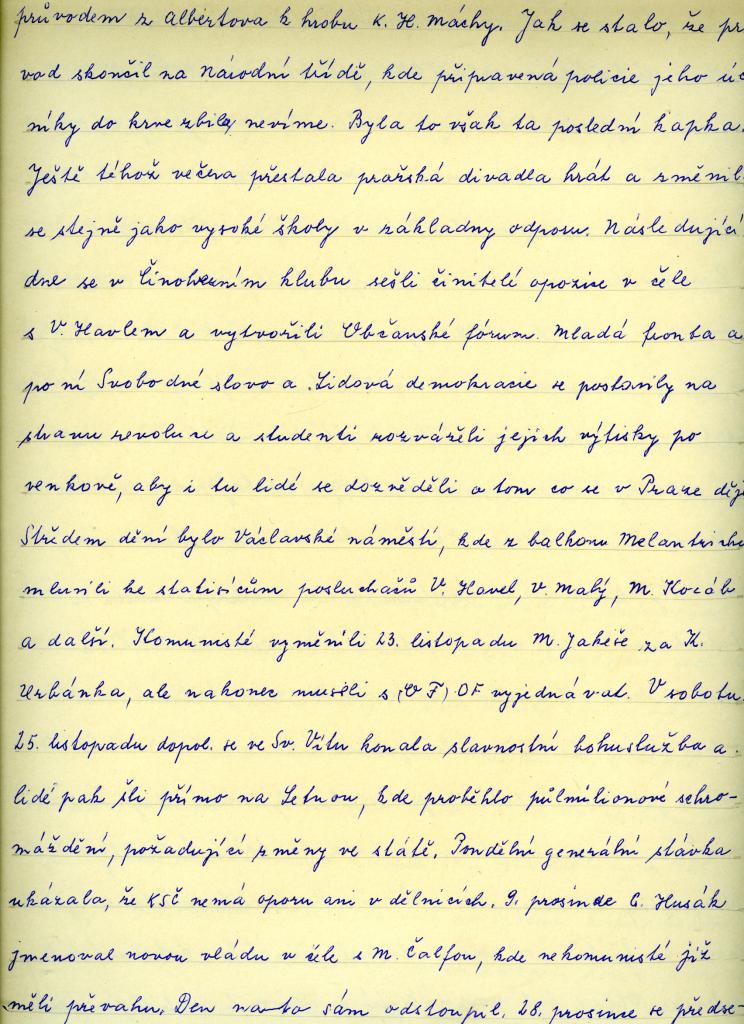 průvodem z Albertova k hrobu K. H. Máchy. Jak se stalo, že pr
vod skončil na Národní třídě, kde připravená policie jeho úč
níky do krve zbila, nevíme. Byla to však ta poslední kapka.
Ještě téhož večera přestala pražská divadla hrát a změnil
se stejně jako vysoké školy v základny odporu. Následující
dne se v Činoherním klubu sešli činitelé opozice v čele
s V. Havlem a vytvořili Občanské fórum. Mladá fronta a
po ní Svobodné slovo a Lidová demokracie se postavily na
stranu revoluce a studenti rozváželi jejich výtisky po
venkově, aby i tu lidé se dozvěděli o tom co se v Praze děj
Středem dění bylo Václavské náměstí, kde z balkonu Melantricha
mluvili ke statisícům posluchačů V. Havel, V. Malý, M. Kocáb
a další. Komunisté vyměnili 23. listopadu M. Jakeše za K.
Urbánka, ale nakonec museli s (OF) OF vyjednávat. V sobotu
25. listopadu dopol. se ve Sv. Vítu konala slavnostní bohuslužba a
lidé pak šli přímo na Letnou, kde proběhlo půlmilionové schro-
máždění, požadující změny ve státě. Pondělní generální stávka
ukázala, že KSČ nemá oporu ani v dělnících. 9. prosince G. Husák
jmenoval novou vládu v čele s M. Čalfou, kde nekomunisté již
měli převahu. Den na to sám odstoupil. 28. prosince se předse-